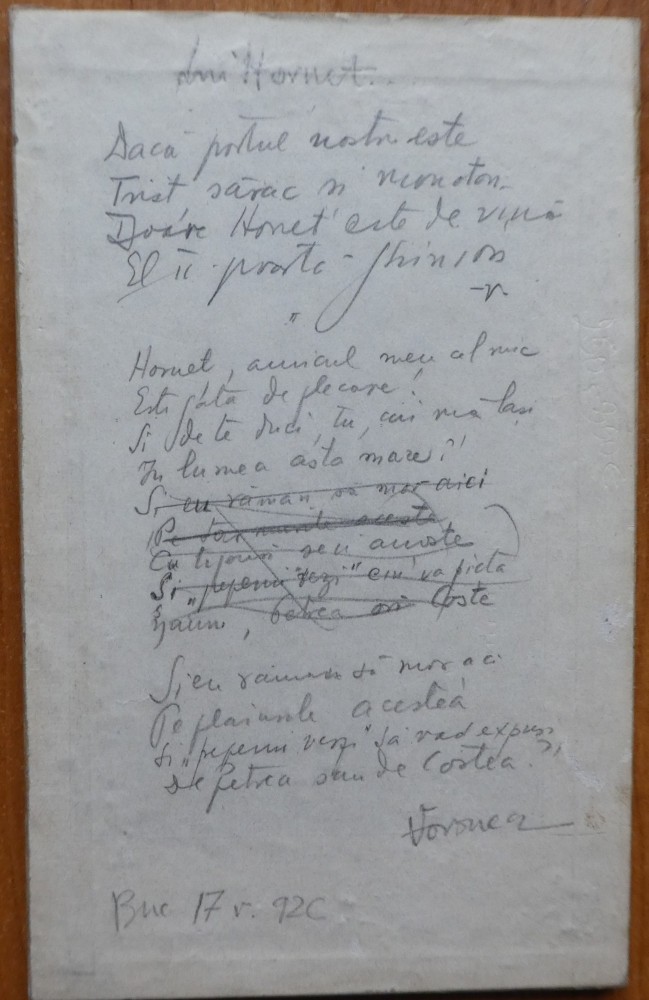 Lui Hornet..
Dacă portul nostru este
Trist sărac si monoton
Doáre Hornet este de vină
El îi poartă - ghinion
-v.
"
Hornet, amicul meu cel mic
Esti gata de plecare!
Si de te duci, tu, cui mă lasi
In lumea asta mare?!
Si eu rămân să mor aici
Pe aceste
Cu aceste
Si "pepenii verzi" cui va picta
Petrea ori Coste
Si eu rămân să mor aci
Pe plaiurile acestea
Si "pepenii verzi" să văd expusi
De Petrea sau de Costea.?!
Voronca
Buc 17 v. 92